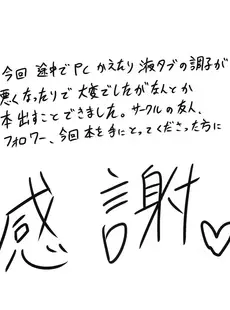 今回 途中でPCかえたり 液タブの調子が
悪くなったりで 大変でしたがなんとか
本出すことできました。サークルの友人、
フォロワー、今回本を手にとってくださった方に
感謝♡